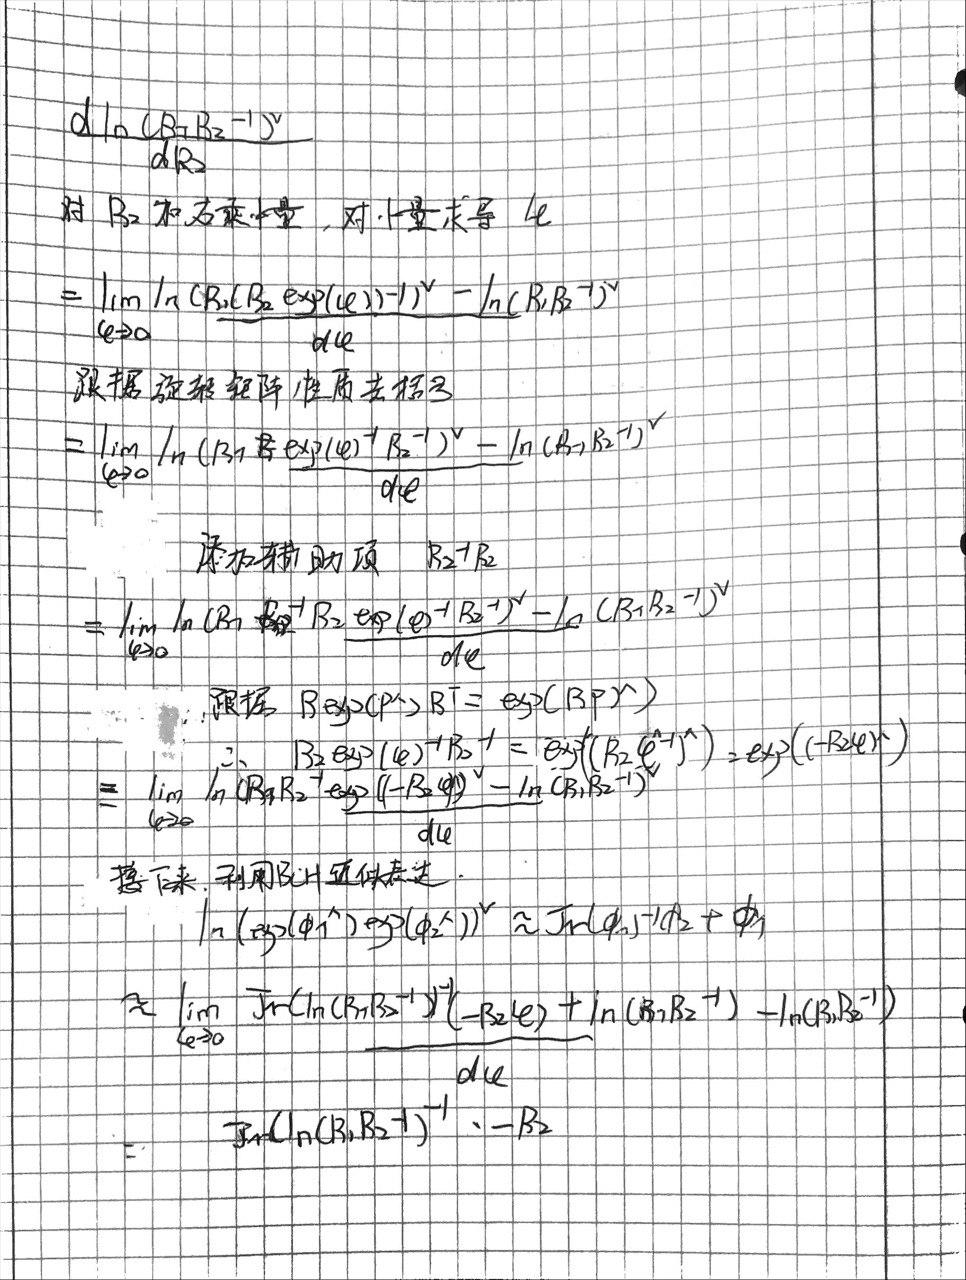 d ln (R₁R₂⁻¹)ᵛ
dR₂
对 R₂ 加右乘小量 , 对小量求导 φ
= lim ln (R₁(R₂ exp(φ))-1)ᵛ − ln(R₁R₂⁻¹)ᵛ
φ→0 dφ
跟据旋转矩阵性质去括号
= lim ln (R₁ exp(φ)⁻¹ R₂⁻¹)ᵛ − ln (R₁R₂⁻¹)ᵛ
φ→0 dφ
添加辅助项 R₂⁻¹R₂
= lim ln (R₁ R₂⁻¹ R₂ exp(φ)⁻¹ R₂⁻¹)ᵛ − ln (R₁R₂⁻¹)ᵛ
φ→0 dφ
跟据 R exp(P^) Rᵀ = exp(RP)^)
∴ R₂ exp(φ)⁻¹R₂⁻¹ = exp((R₂φ^⁻¹)^) = exp((-R₂φ)^)
= lim ln (R₁R₂⁻¹ exp((-R₂φ))ᵛ − ln (R₁R₂⁻¹)ᵛ
φ→0 dφ
接下来, 利用BCH近似表达.
ln (exp(ϕ₁^) exp(ϕ₂^))ᵛ ≈ Jr(ϕ₁)⁻¹ϕ₂ + ϕ₁
≈ lim Jr(ln(R₁R₂⁻¹)⁻¹(-R₂φ) + ln(R₁R₂⁻¹) − ln(R₁R₂⁻¹)
φ→0 dφ
= Jr(ln(R₁R₂⁻¹)⁻¹ · −R₂